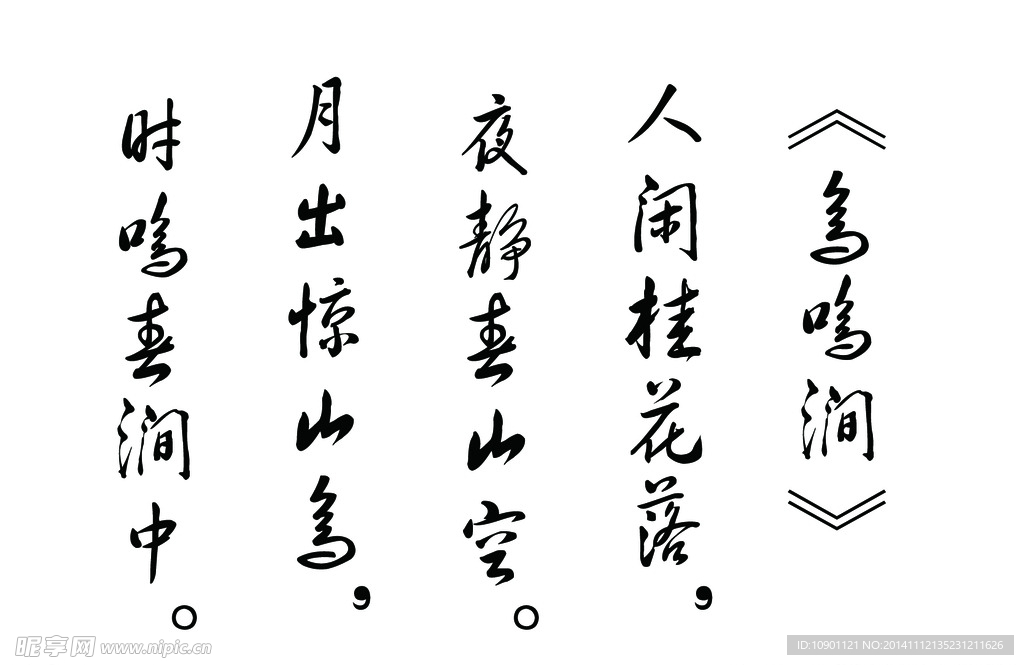 《鸟鸣涧》
人闲桂花落，
夜静春山空。
月出惊山鸟，
时鸣春涧中。
昵享网 www.nipic.cn
ID:10901121 NO:20141112135231211626